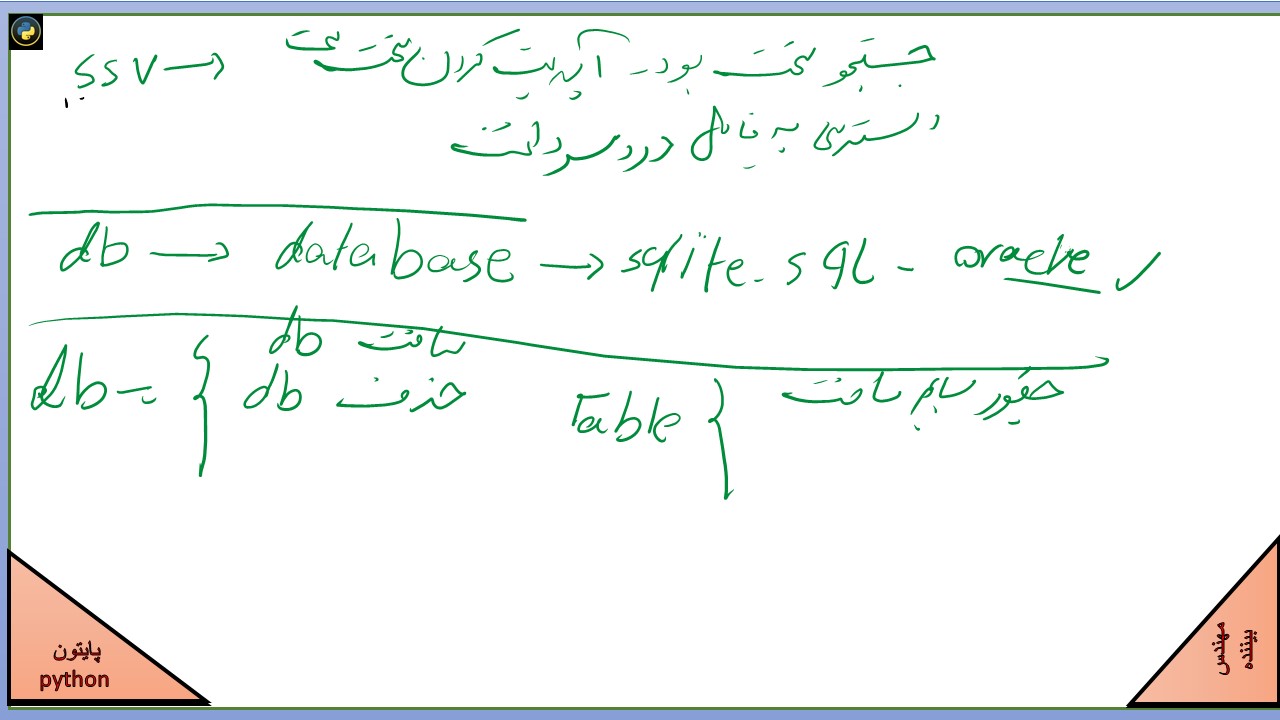 ssv → جستجو سخت بود - آپدیت کردن سخت
دسترسی به فایل دردسر داشت
db → database → sqlite - sql - oracle ✓
ساخت db
db { حذف db
Table { ساخت
پایتون
python
مهندس
بیننده